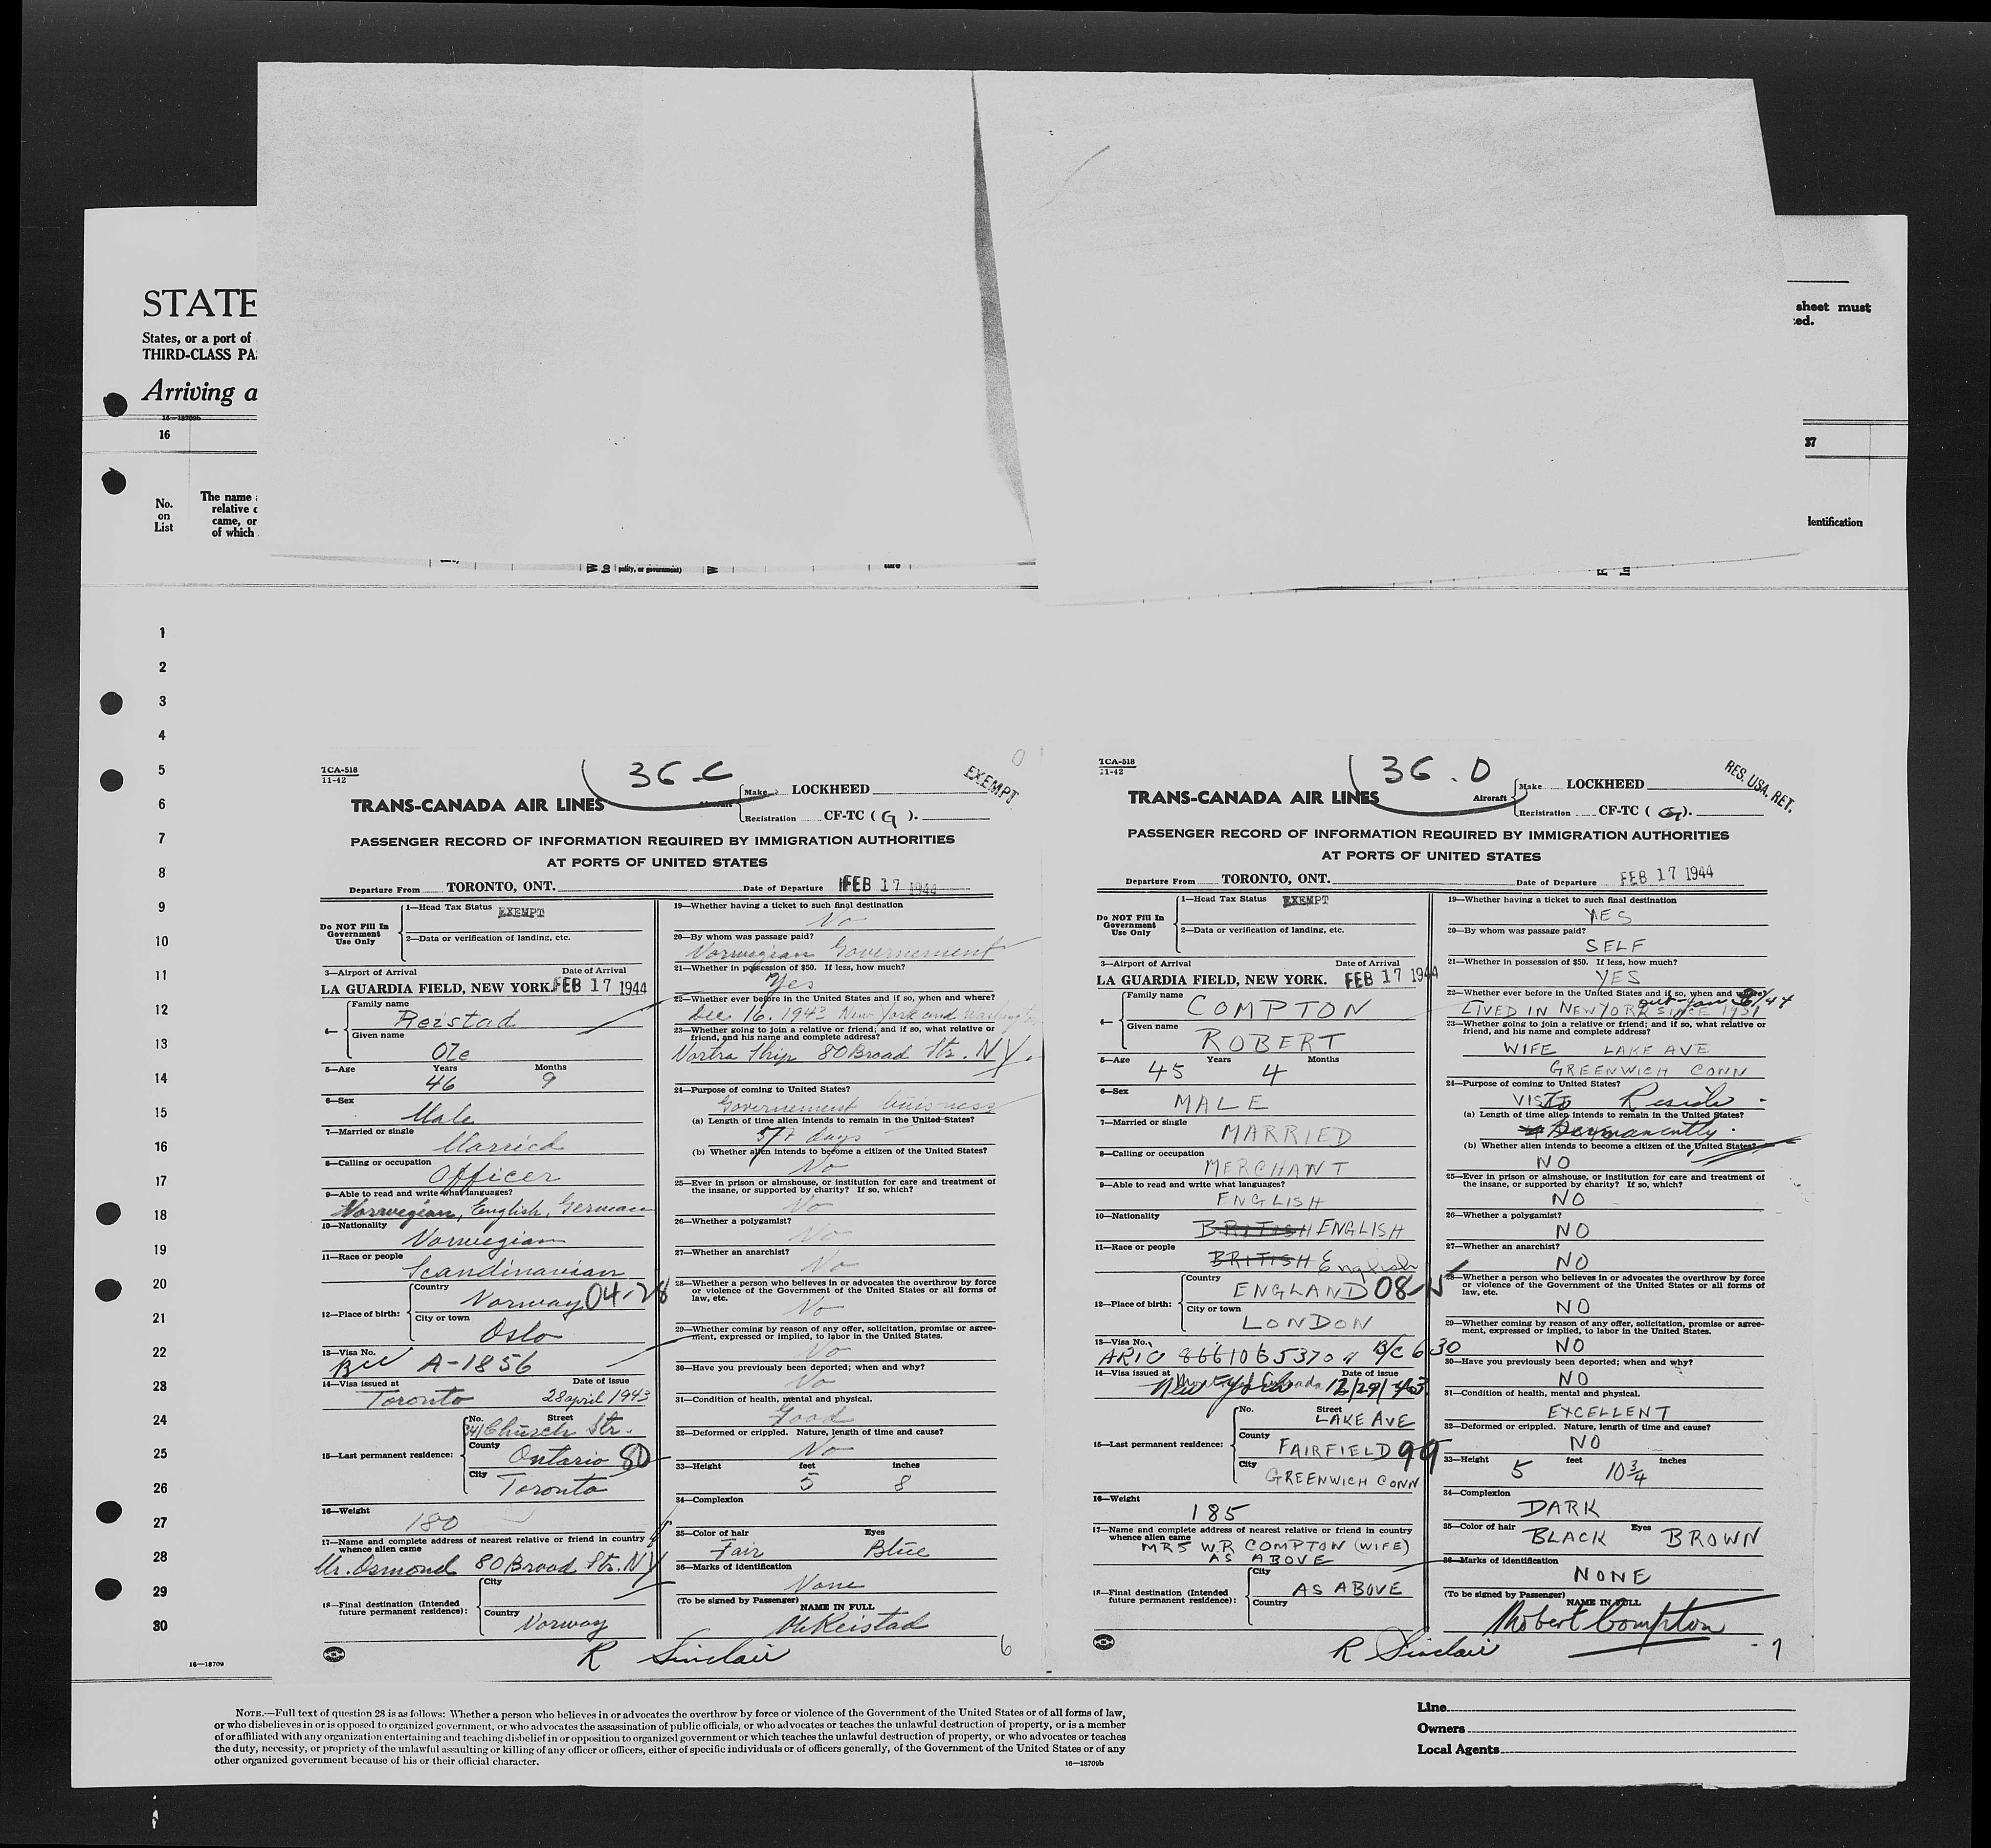 STATE
States, or a port of
THIRD-CLASS PA
Arriving a
16—18709b
16
No.
on
List
The name
relative
came, or
of which
sheet must
ed.
37
lentification
W
to
party, or government)
W
1
2
3
4
5
6
7
8
9
10
11
12
13
14
15
16
17
18
19
20
21
22
23
24
25
26
27
28
29
30
16—18709
TCA-518
11-42
36-C
EXEMPT
TRANS-CANADA AIR LINES
Aircraft
Make LOCKHEED
Registration CF-TC ( G ).
PASSENGER RECORD OF INFORMATION REQUIRED BY IMMIGRATION AUTHORITIES
AT PORTS OF UNITED STATES
Departure From TORONTO, ONT. Date of Departure FEB 17 1944
Do NOT Fill In
Government
Use Only
1—Head Tax Status EXEMPT
2—Data or verification of landing, etc.
3—Airport of Arrival Date of Arrival
LA GUARDIA FIELD, NEW YORK. FEB 17 1944
4—
Family name
Reistad
Given name
Ole
5—Age Years Months
46 9
6—Sex
Male
7—Married or single
Married
8—Calling or occupation
Officer
9—Able to read and write what languages?
Norwegian, English, German
10—Nationality
Norwegian
11—Race or people
Scandinavian
12—Place of birth:
Country
Norway 04-28
City or town
Oslo
13—Visa No.
A-1856
14—Visa issued at Date of issue
Toronto 28 april 1943
15—Last permanent residence:
No. Street
341 Church Str.
County
Ontario 80
City
Toronto
16—Weight
180
17—Name and complete address of nearest relative or friend in country
whence alien came
Mr. Osmond 80 Broad Str. NY
18—Final destination (Intended
future permanent residence):
City
Country
Norway
19—Whether having a ticket to such final destination
No
20—By whom was passage paid?
Norwegian Governement
21—Whether in possession of $50. If less, how much?
Yes
22—Whether ever before in the United States and if so, when and where?
Dec 16. 1943 New York and Washington
23—Whether going to join a relative or friend; and if so, what relative or
friend, and his name and complete address?
Nortra Ship 80 Broad Str. NY.
24—Purpose of coming to United States?
Governement buisness
(a) Length of time alien intends to remain in the United States?
days
(b) Whether alien intends to become a citizen of the United States?
No
25—Ever in prison or almshouse, or institution for care and treatment of
the insane, or supported by charity? If so, which?
No
26—Whether a polygamist?
No
27—Whether an anarchist?
No
28—Whether a person who believes in or advocates the overthrow by force
or violence of the Government of the United States or all forms of
law, etc.
No
29—Whether coming by reason of any offer, solicitation, promise or agree-
ment, expressed or implied, to labor in the United States.
No
30—Have you previously been deported; when and why?
No
31—Condition of health, mental and physical.
Good
32—Deformed or crippled. Nature, length of time and cause?
No
33—Height feet inches
5 8
34—Complexion
35—Color of hair Eyes
Fair Blue
36—Marks of identification
None
(To be signed by Passenger) NAME IN FULL
OleReistad
R Sinclair
6
TCA-518
11-42
36.D
RES. USA. RET.
TRANS-CANADA AIR LINES
Aircraft
Make LOCKHEED
Registration CF-TC ( G ).
PASSENGER RECORD OF INFORMATION REQUIRED BY IMMIGRATION AUTHORITIES
AT PORTS OF UNITED STATES
Departure From TORONTO, ONT. Date of Departure FEB 17 1944
Do NOT Fill In
Government
Use Only
1—Head Tax Status EXEMPT
2—Data or verification of landing, etc.
3—Airport of Arrival Date of Arrival
LA GUARDIA FIELD, NEW YORK. FEB 17 1944
4—
Family name
COMPTON
Given name
ROBERT
5—Age Years Months
45 4
6—Sex
MALE
7—Married or single
MARRIED
8—Calling or occupation
MERCHANT
9—Able to read and write what languages?
ENGLISH
10—Nationality
BRITISH ENGLISH
11—Race or people
BRITISH English
12—Place of birth:
Country
ENGLAND 08-
City or town
LONDON
13—Visa No.
B/C 630
14—Visa issued at Date of issue
New York 12/29/43
15—Last permanent residence:
No. Street
LAKE AVE
County
FAIRFIELD 99
City
GREENWICH CONN
16—Weight
185
17—Name and complete address of nearest relative or friend in country
whence alien came
MRS W.R COMPTON (WIFE)
AS ABOVE
18—Final destination (Intended
future permanent residence):
City
AS ABOVE
Country
19—Whether having a ticket to such final destination
YES
20—By whom was passage paid?
SELF
21—Whether in possession of $50. If less, how much?
YES
22—Whether ever before in the United States and if so, when and where?
LIVED IN NEW YORK SINCE 1931
23—Whether going to join a relative or friend; and if so, what relative or
friend, and his name and complete address?
WIFE LAKE AVE
GREENWICH CONN
24—Purpose of coming to United States?
To Reside
(a) Length of time alien intends to remain in the United States?
Permanently.
(b) Whether alien intends to become a citizen of the United States?
NO
25—Ever in prison or almshouse, or institution for care and treatment of
the insane, or supported by charity? If so, which?
NO
26—Whether a polygamist?
NO
27—Whether an anarchist?
NO
28—Whether a person who believes in or advocates the overthrow by force
or violence of the Government of the United States or all forms of
law, etc.
NO
29—Whether coming by reason of any offer, solicitation, promise or agree-
ment, expressed or implied, to labor in the United States.
NO
30—Have you previously been deported; when and why?
NO
31—Condition of health, mental and physical.
EXCELLENT
32—Deformed or crippled. Nature, length of time and cause?
NO
33—Height feet inches
5 10 3/4
34—Complexion
DARK
35—Color of hair Eyes
BLACK BROWN
36—Marks of identification
NONE
(To be signed by Passenger) NAME IN FULL
Robert Compton
R Sinclair
7
NOTE.—Full text of question 28 is as follows: Whether a person who believes in or advocates the overthrow by force or violence of the Government of the United States or of all forms of law,
or who disbelieves in or is opposed to organized government, or who advocates the assassination of public officials, or who advocates or teaches the unlawful destruction of property, or is a member
of or affiliated with any organization entertaining and teaching disbelief in or opposition to organized government or which teaches the unlawful destruction of property, or who advocates or teaches
the duty, necessity, or propriety of the unlawful assaulting or killing of any officer or officers, either of specific individuals or of officers generally, of the Government of the United States or of any
other organized government because of his or their official character.
16—18709b
Line
Owners
Local Agents